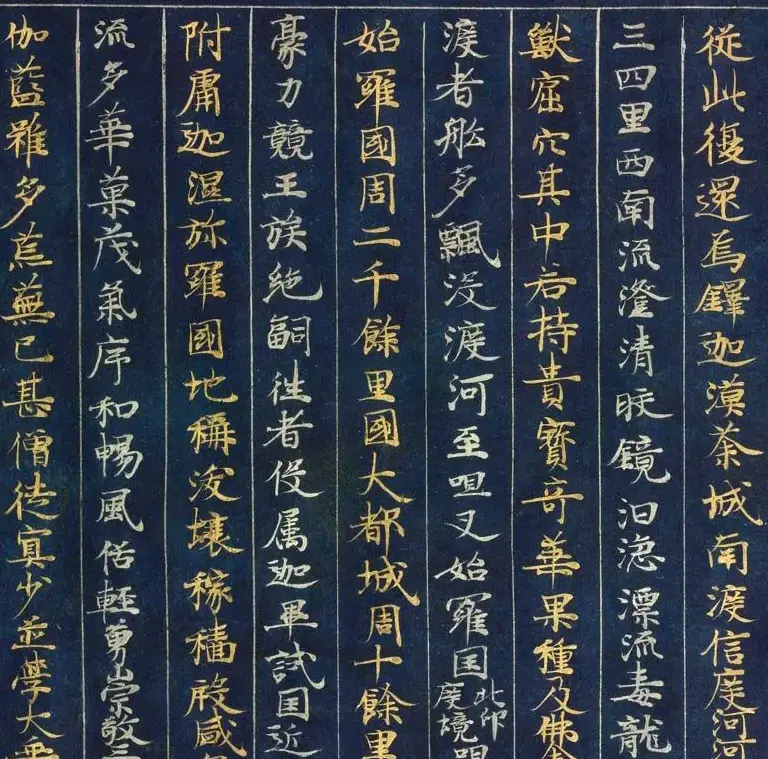 從此復還烏鐸迦漠荼城南渡信度河河
三四里西南流澄清晈鏡汩淴漂流毒龍
獸窟穴其中若持貴寶奇華果種及佛舍
渡者船多飄没渡河至呾叉始羅国北印度境
始羅國周二千餘里國大都城周十餘里
豪力競王族絶嗣往者役属迦畢試国近
附庸迦濕弥羅國地稱沃壤稼穡殷盛
流多華菓茂氣序和暢風俗輕勇崇敬三
伽藍雖多荒蕪已甚僧徒寡少並學大乘